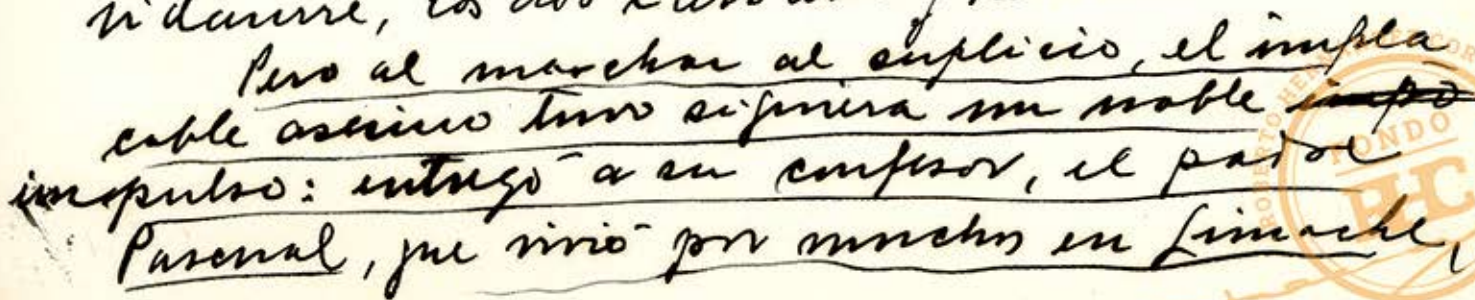 Pero al marchar al suplicio, el impla
cable asesino tuvo siquiera un noble impo
impulso: entregó a su confesor, el padre
Pascual, que vivió por muchos en Limache,
FONDO
RHC